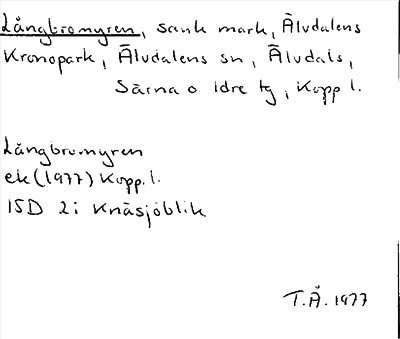 Långbromyren, sank mark, Älvdalens
Kronopark, Älvdalens sn, Älvdals,
Särna o Idre tg, Kopp l.
Långbromyren
ek (1977) Kopp. l.
15D 2i Knäsjöblik
T.Å. 1977